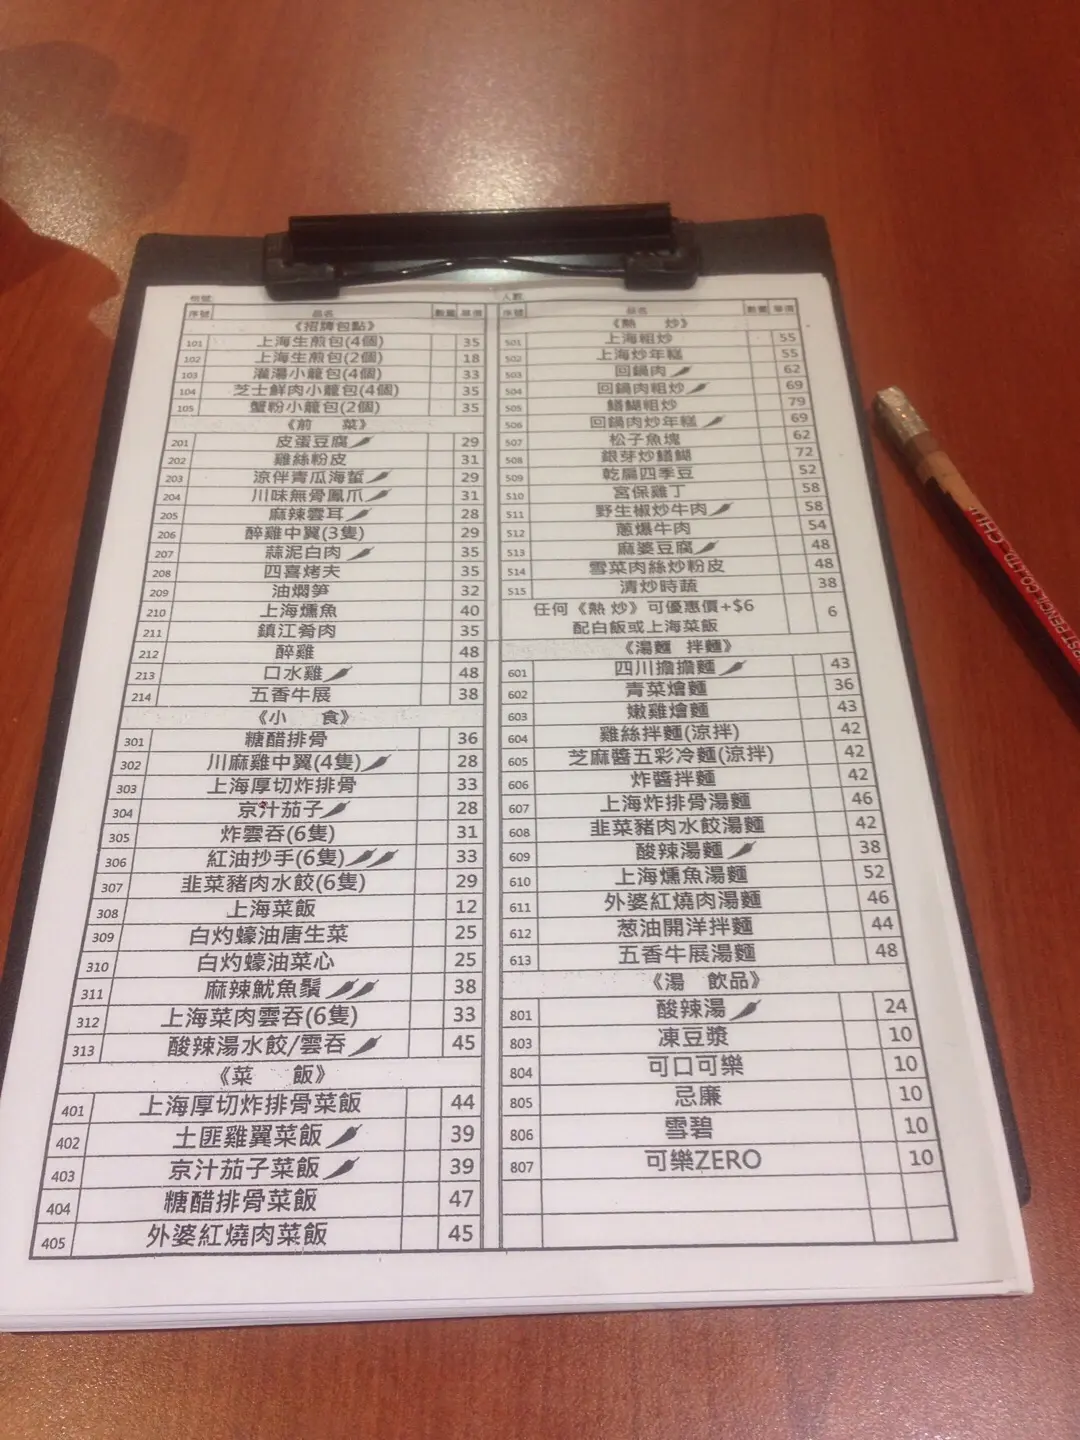 枱號
序號 品名 數量 單價
《招牌包點》
101 上海生煎包(4個) 35
102 上海生煎包(2個) 18
103 灌湯小籠包(4個) 33
104 芝士鮮肉小籠包(4個) 35
105 蟹粉小籠包(2個) 35
《前 菜》
201 皮蛋豆腐 29
202 雞絲粉皮 31
203 涼伴青瓜海蜇 29
204 川味無骨鳳爪 31
205 麻辣雲耳 28
206 醉雞中翼(3隻) 29
207 蒜泥白肉 35
208 四喜烤夫 35
209 油燜筍 32
210 上海燻魚 40
211 鎮江肴肉 35
212 醉雞 48
213 口水雞 48
214 五香牛展 38
《小 食》
301 糖醋排骨 36
302 川麻雞中翼(4隻) 28
303 上海厚切炸排骨 33
304 京汁茄子 28
305 炸雲吞(6隻) 31
306 紅油抄手(6隻) 33
307 韭菜豬肉水餃(6隻) 29
308 上海菜飯 12
309 白灼蠔油唐生菜 25
310 白灼蠔油菜心 25
311 麻辣魷魚鬚 38
312 上海菜肉雲吞(6隻) 33
313 酸辣湯水餃/雲吞 45
《菜 飯》
401 上海厚切炸排骨菜飯 44
402 土匪雞翼菜飯 39
403 京汁茄子菜飯 39
404 糖醋排骨菜飯 47
405 外婆紅燒肉菜飯 45
人數
序號 品名 數量 單價
《熱 炒》
501 上海粗炒 55
502 上海炒年糕 55
503 回鍋肉 62
504 回鍋肉粗炒 69
505 鱔鰗粗炒 79
506 回鍋肉炒年糕 69
507 松子魚塊 62
508 銀芽炒鱔鰗 72
509 乾扁四季豆 52
510 宮保雞丁 58
511 野生椒炒牛肉 58
512 蔥爆牛肉 54
513 麻婆豆腐 48
514 雪菜肉絲炒粉皮 48
515 清炒時蔬 38
任何《熱 炒》可優惠價+$6
配白飯或上海菜飯 6
《湯麵 拌麵》
601 四川擔擔麵 43
602 青菜燴麵 36
603 嫩雞燴麵 43
604 雞絲拌麵(涼拌) 42
605 芝麻醬五彩冷麵(涼拌) 42
606 炸醬拌麵 42
607 上海炸排骨湯麵 46
608 韭菜豬肉水餃湯麵 42
609 酸辣湯麵 38
610 上海燻魚湯麵 52
611 外婆紅燒肉湯麵 46
612 葱油開洋拌麵 44
613 五香牛展湯麵 48
《湯 飲品》
801 酸辣湯 24
803 凍豆漿 10
804 可口可樂 10
805 忌廉 10
806 雪碧 10
807 可樂ZERO 10
PENCIL CO.,LTD.